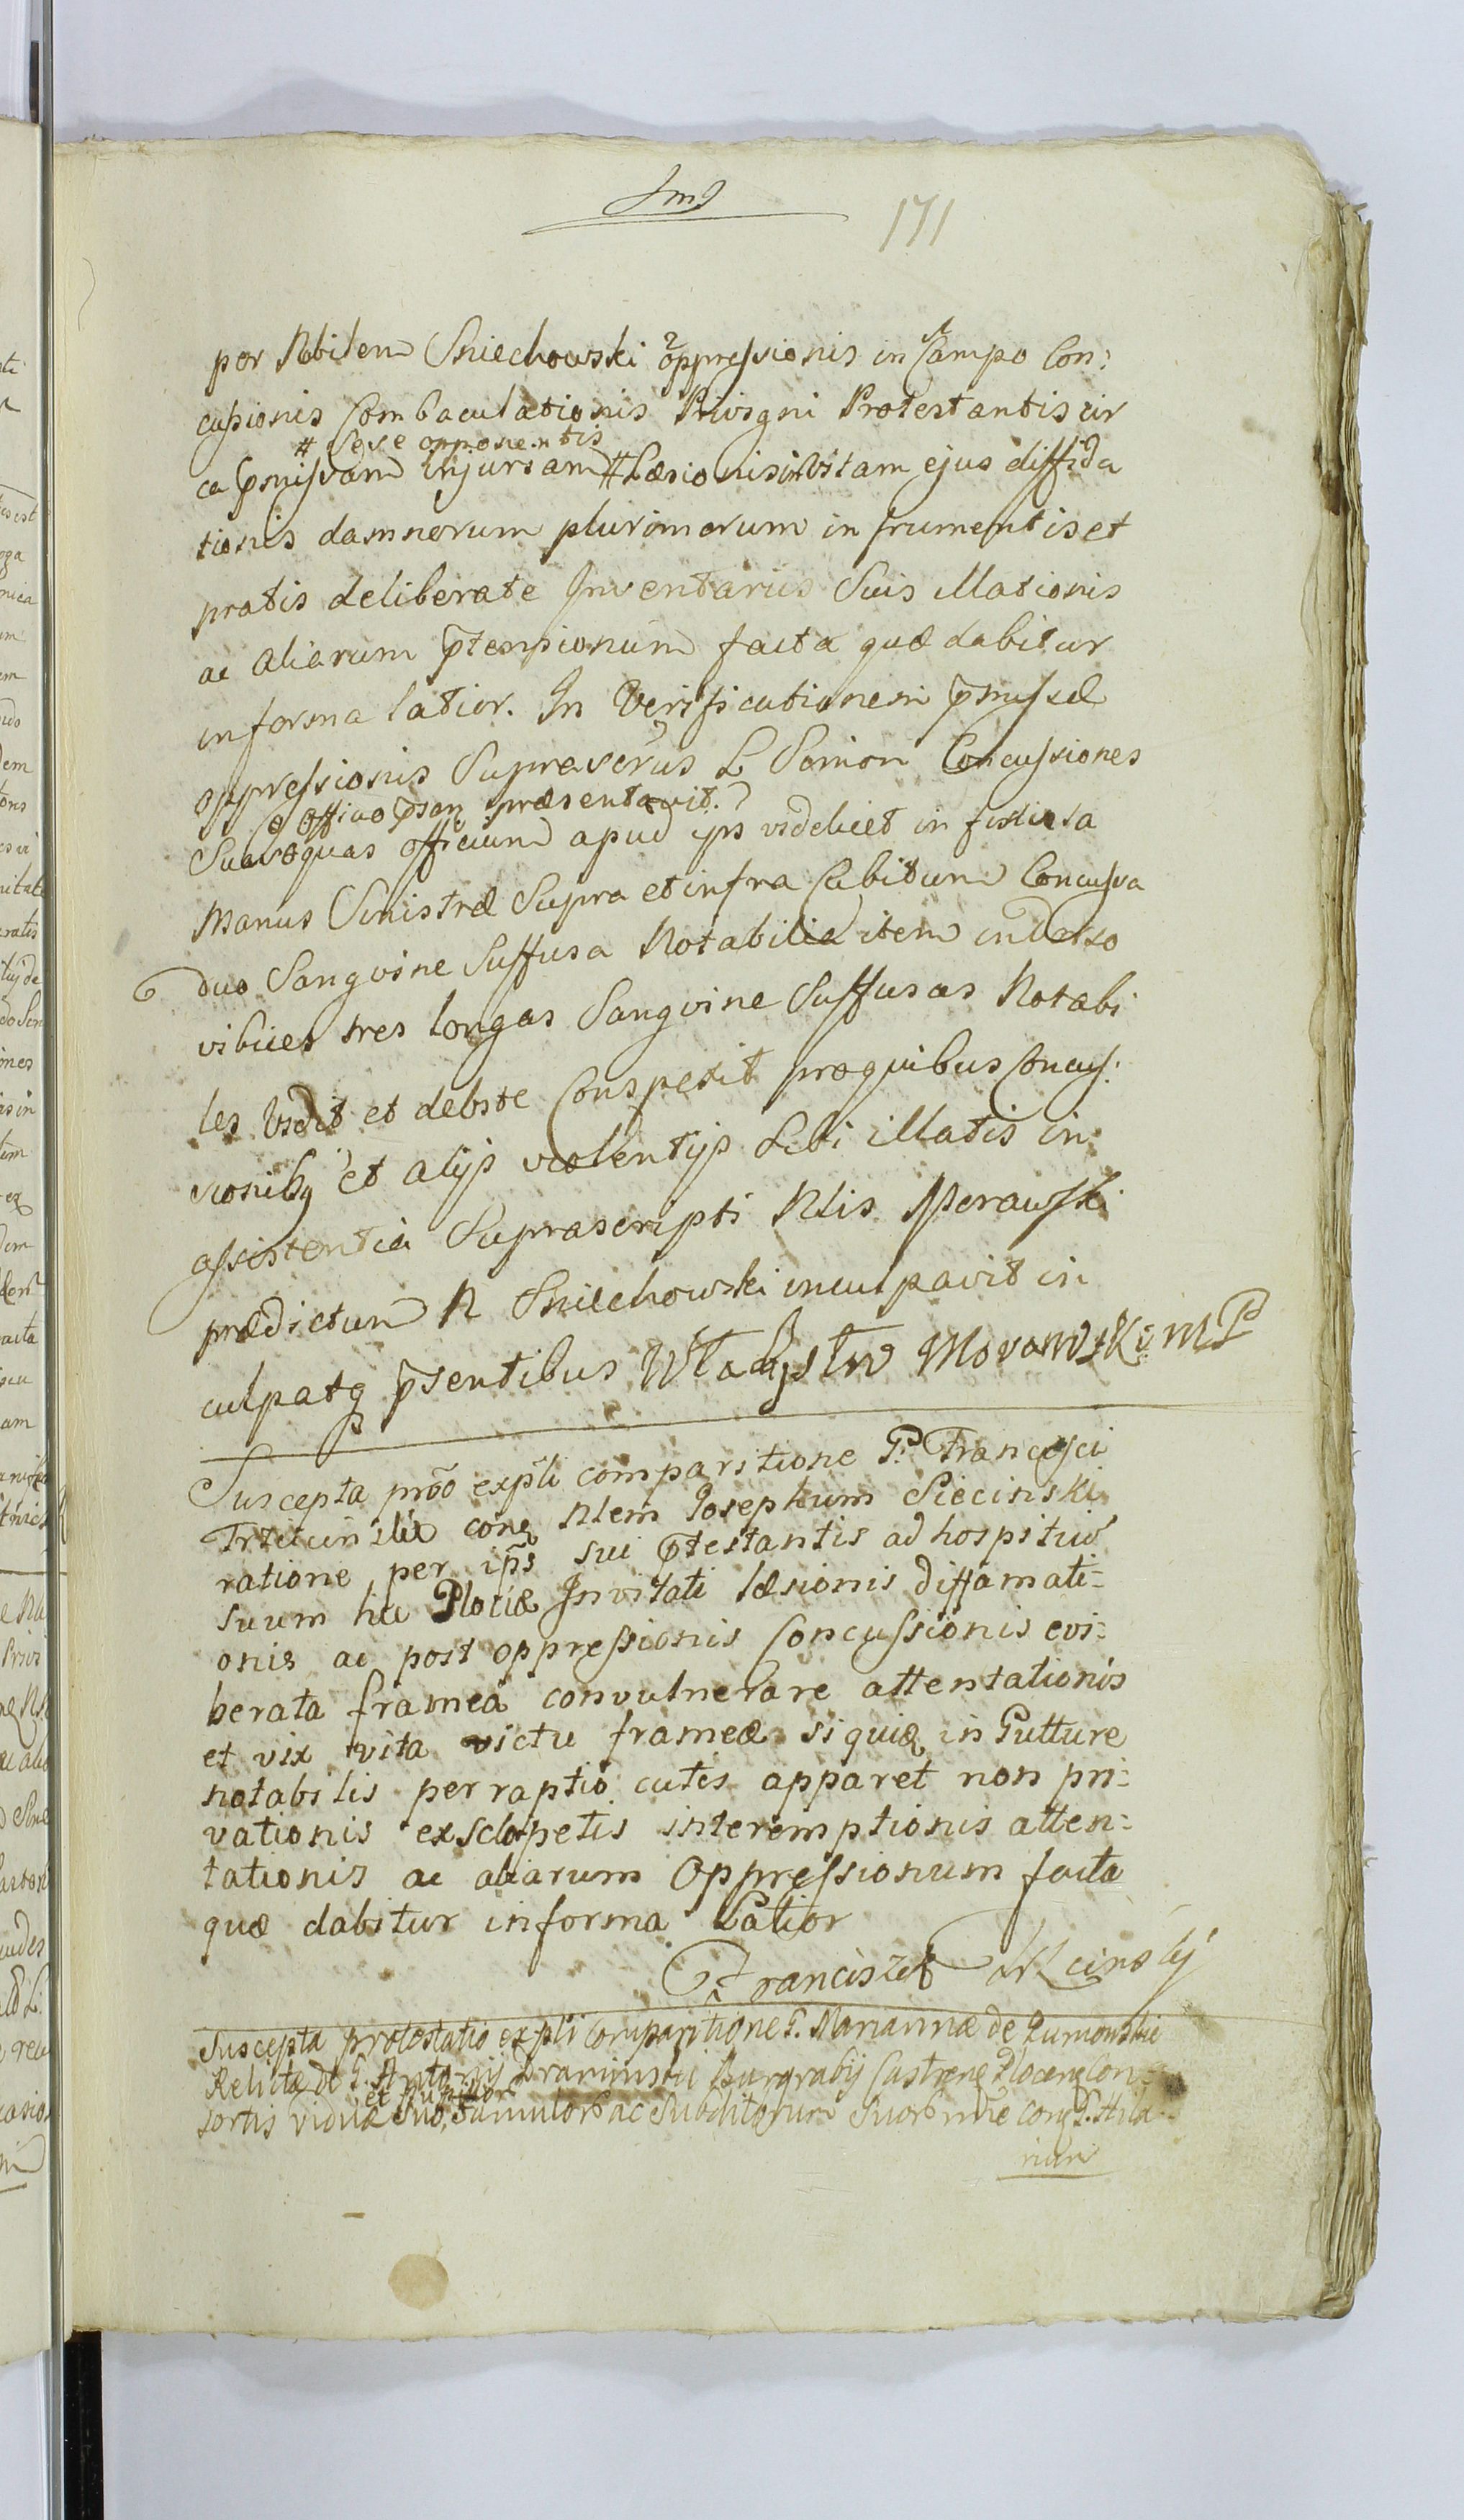 171
per Nobilem Sniechowski oppressionis in Campo Con:
cussionis Combaculationis Privigni Protestantis cir
# sese opponentis
ca pmissam injuriam # Læsionis in vitam ejus diffida
tionis damnorum plurimorum in frumentis et
pratis deliberate Inventariis Suis illationis
ac aliarum ptensionum facta quæ dabitur
in forma latior. In Verificationem pmissæ
oppressionis Supraverus L Simon Concussiones
e Officio psan præsentavit.
Suas quas officium apud ips videlicet in
Manus Sinistræ Supra et infra Cubitum Concussa
duo Sangvine Suffusa Notabilia item in dorso
vibices tres longas Sangvine Suffusas Notabi
les Vidit et debite Conspexit pro quibus Concus:
sionibq et alijs violentijs Sibi illatis in
assistentia Suprascripti Nlis Morawski
prædictum N Sniechowski inculpavit in
culpatq psentibus Władysław MorawskimP
Suscepta proõ expli comparitione G. Francisci
conq Nlem Josephum Siecinski
ratione per ips sui ptestantis ad hospitiũ
suum hic Plociæ Invitati læsionis diffamati-
onis ac post oppressionis Concussionis evi:
berata frameâ convulnerare attentationis
et vix vita victu frameæ siquiq in Gutture
notabilis perraptio cutis apparet non pri:
vationis ex sclopetis interemptionis atten:
tationis ac aliarum Oppressionum facta
quæ dabitur in forma Latior
Franciszek
Suscepta protestatio expli comparitione G. Mariannæ de
Relictæ G. Antonij Draminski Burgrabij Castrens Plocens Con-
et
sortis viduæ suo, famulorũ ac Subditorum Suorũ nrie conq G. Hila-
rium